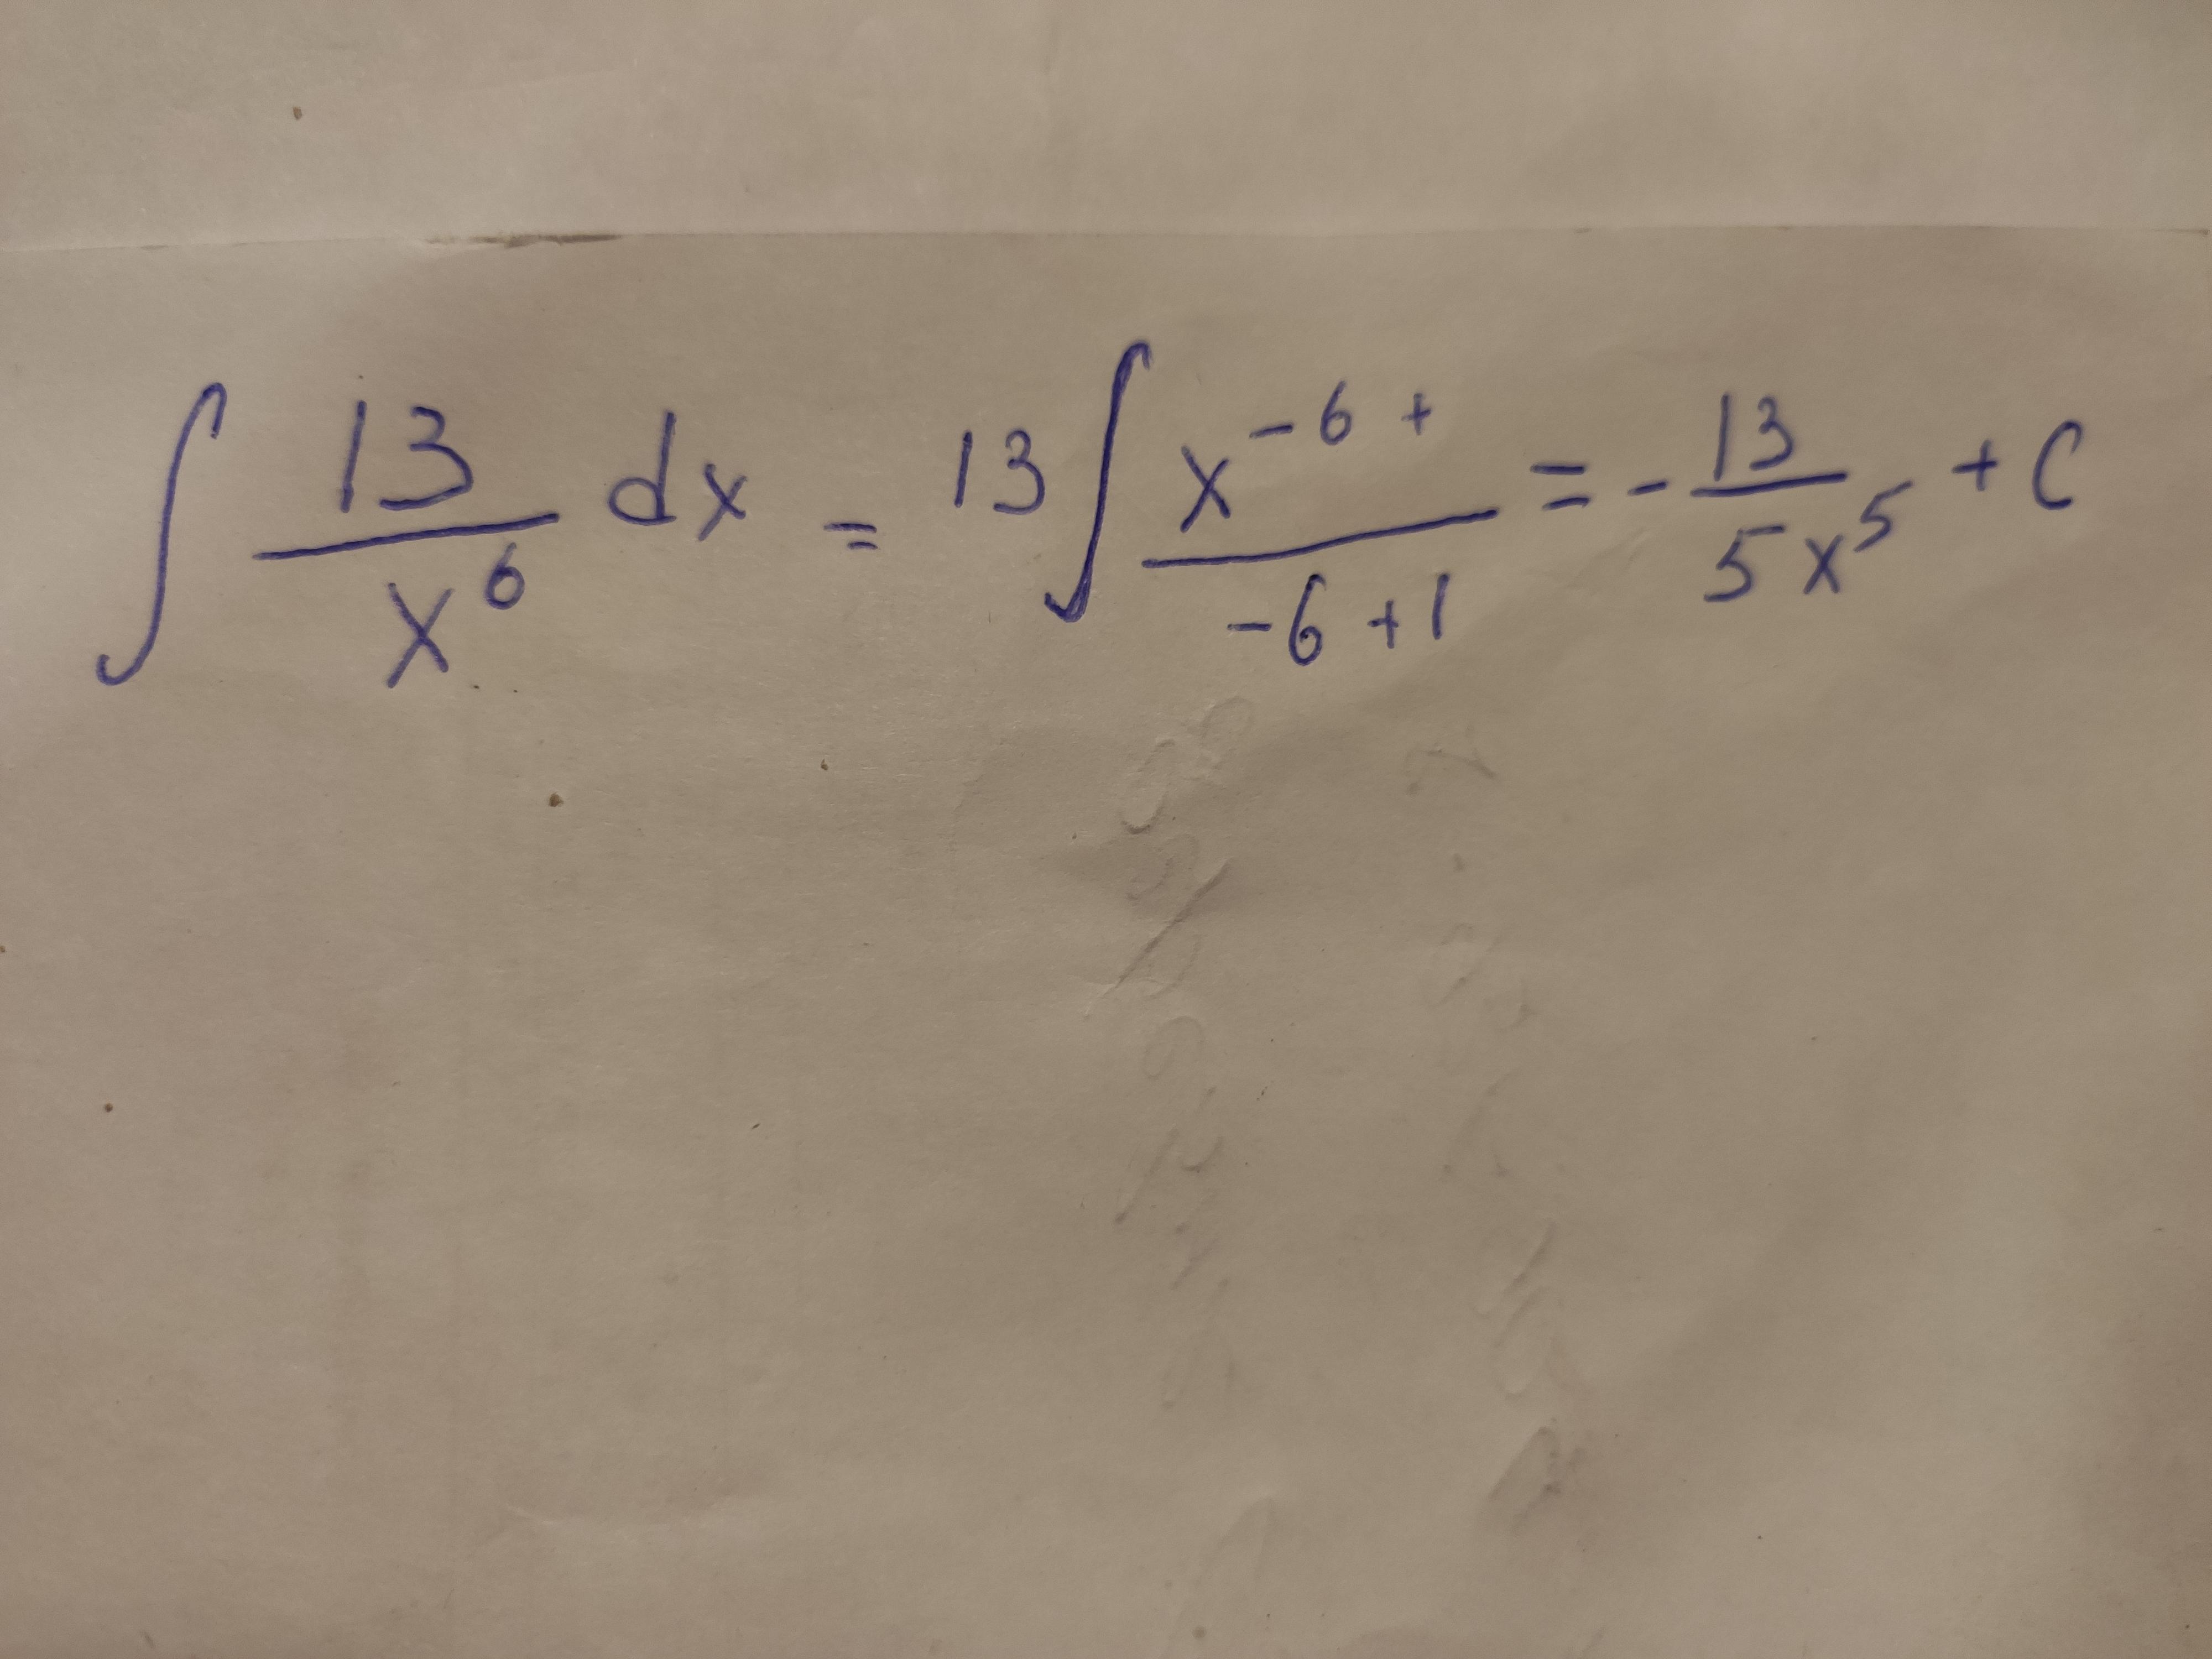 ∫ 13/x⁶ dx = 13 ∫ x⁻⁶ ⁺/-6 +1 = - 13/5x⁵ + C